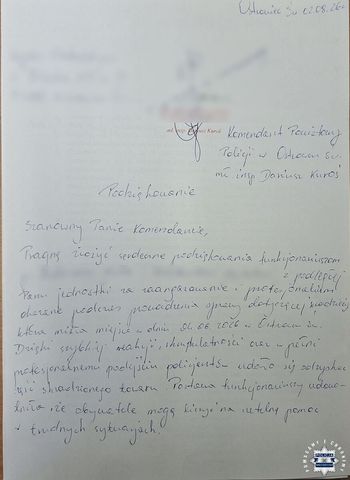 Ostrowiec Św 02.08.26
mł. insp. Dariusz Kuroś
Komendant Powiatowy
Policji w Ostrowcu Św.
mł. insp. Dariusz Kuroś
Podziękowanie
Szanowny Panie Komendancie,
Pragnę złożyć serdeczne podziękowania funkcjonariuszom
z podległej
Panu jednostki za zaangażowanie i profesjonalizm
okazane podczas prowadzenia sprawy dotyczącej kradzieży,
która miała miejsce w dniu 2026 w Ostrowcu Św.
Dzięki szybkiej reakcji, skrupulatności oraz w pełni
profesjonalnemu podejściu policjantów udało się odzyskać
część skradzionego towaru. Postawa funkcjonariuszy udowo-
dniła że obywatele mogą liczyć na rzetelną pomoc
w trudnych sytuacjach.
POMAGAMY I CHRONIMY
POLICJA